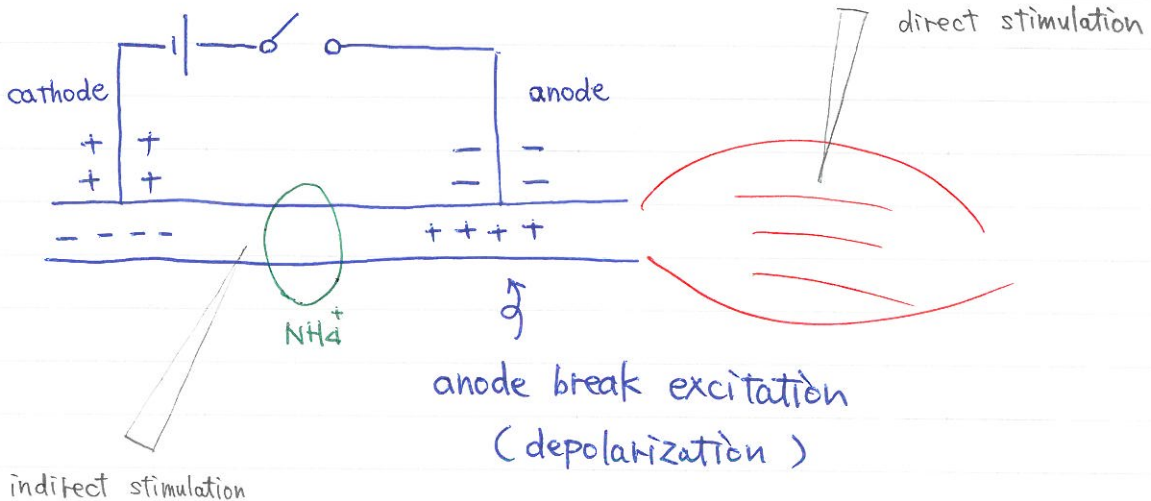 direct stimulation
cathode
anode
+ +
+ +
− −
− −
− − − −
+ + + +
NH4+
anode break excitation
(depolarization)
indirect stimulation